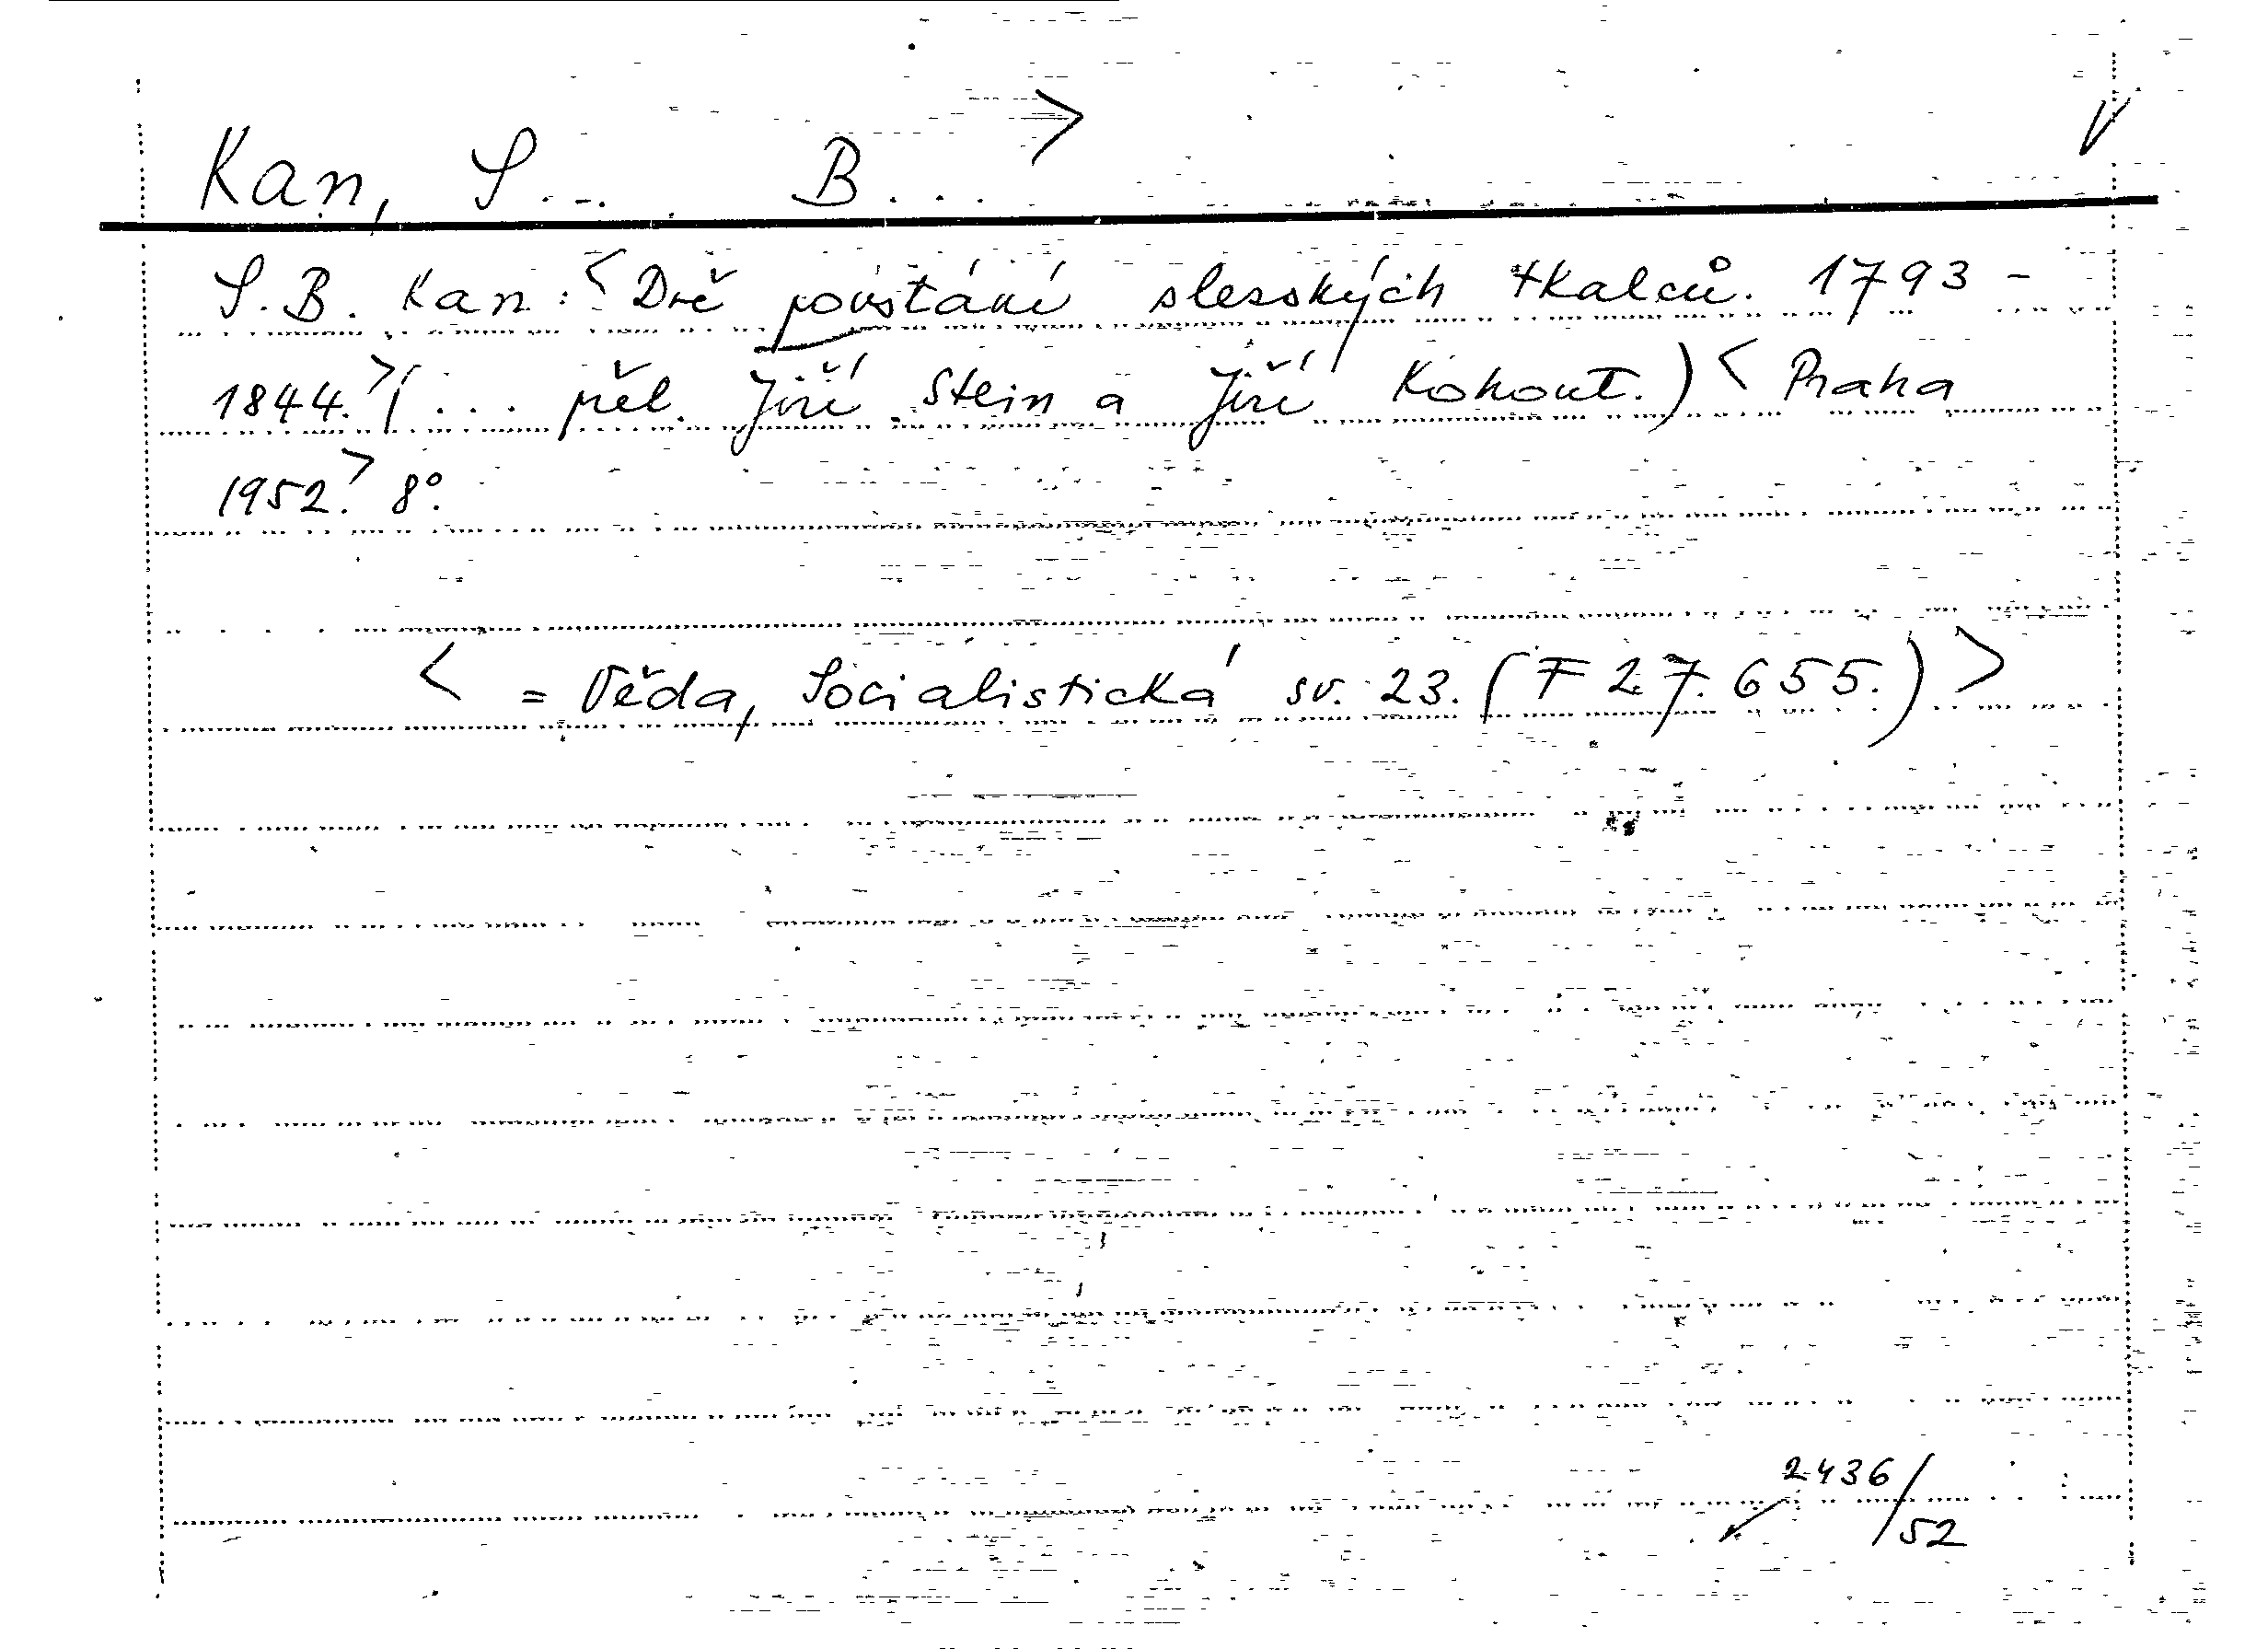 Kan, S... B... >
S. B. Kan: <Dvě povstání slesských tkalců. 1793 -
1844.> (... přel. Jiří Stein a Jiří Kohout.) < Praha
1952.> 8°.
< = Věda, Socialistická sv. 23. (F 27.655.) >
2436/
52